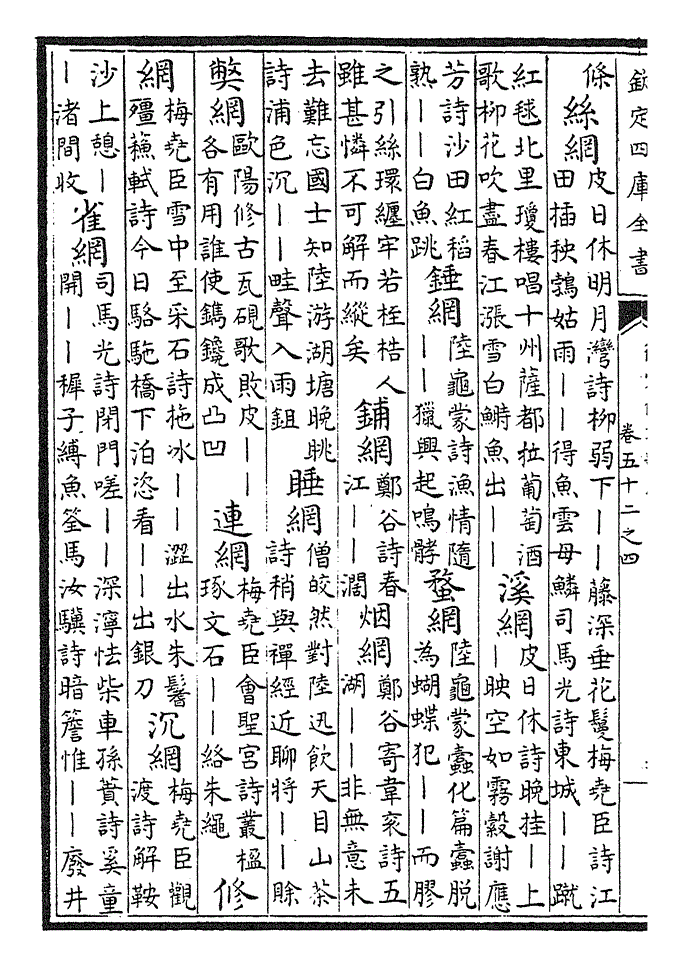 欽定四庫全書
卷五十二之四
條絲網皮日休明月灣詩柳弱下——藤深垂花鬘梅堯臣詩江田插秧鵓姑雨——得魚雲母鱗司馬光詩東城——蹴
紅毬北里瓊樓唱十州薩都拉葡萄酒歌柳花吹盡春江漲雪白鰣魚出——溪網皮日休詩晚挂—上—映空如霧縠謝應
芳詩沙田紅稻熟——白魚跳錘網陸龜蒙詩漁情隨——獵興起鳴髇蝥網陸龜蒙蠹化篇蠹脫為蝴蝶犯——而膠
之引絲環纏牢若桎梏人雖甚憐不可解而縱矣鋪網鄭谷詩春江——濶烟網鄭谷寄韋衮詩五湖——非無意未
去難忘國士知陸游湖塘晚眺詩浦色沉——畦聲入雨鉏睡網僧皎然對陸迅飲天目山茶詩稍與禪經近聊將——賒
獘網歐陽修古瓦硯歌敗皮——各有用誰使鐫鑱成凸凹連網梅堯臣會聖宮詩叢楹琢文石——絡朱繩修
網梅堯臣雪中至采石詩拖冰——澀出水朱鬐殭蘓軾詩今日駱駞橋下泊恣看——出銀刀沉網梅堯臣觀渡詩解鞍
沙上憩——渚間收雀網司馬光詩閉門嗟——深濘怯柴車孫蕡詩奚童開——穉子縛魚筌馬汝驥詩暗簷惟——廢井